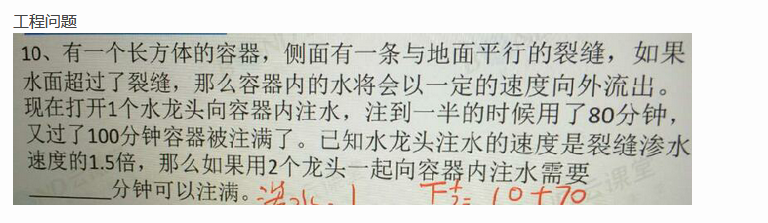 工程问题
10、有一个长方体的容器，侧面有一条与地面平行的裂缝，如果
水面超过了裂缝，那么容器内的水将会以一定的速度向外流出。
现在打开1个水龙头向容器内注水，注到一半的时候用了80分钟，
又过了100分钟容器被注满了。已知水龙头注水的速度是裂缝渗水
速度的1.5倍，那么如果用2个龙头一起向容器内注水需要
________分钟可以注满。
10+70